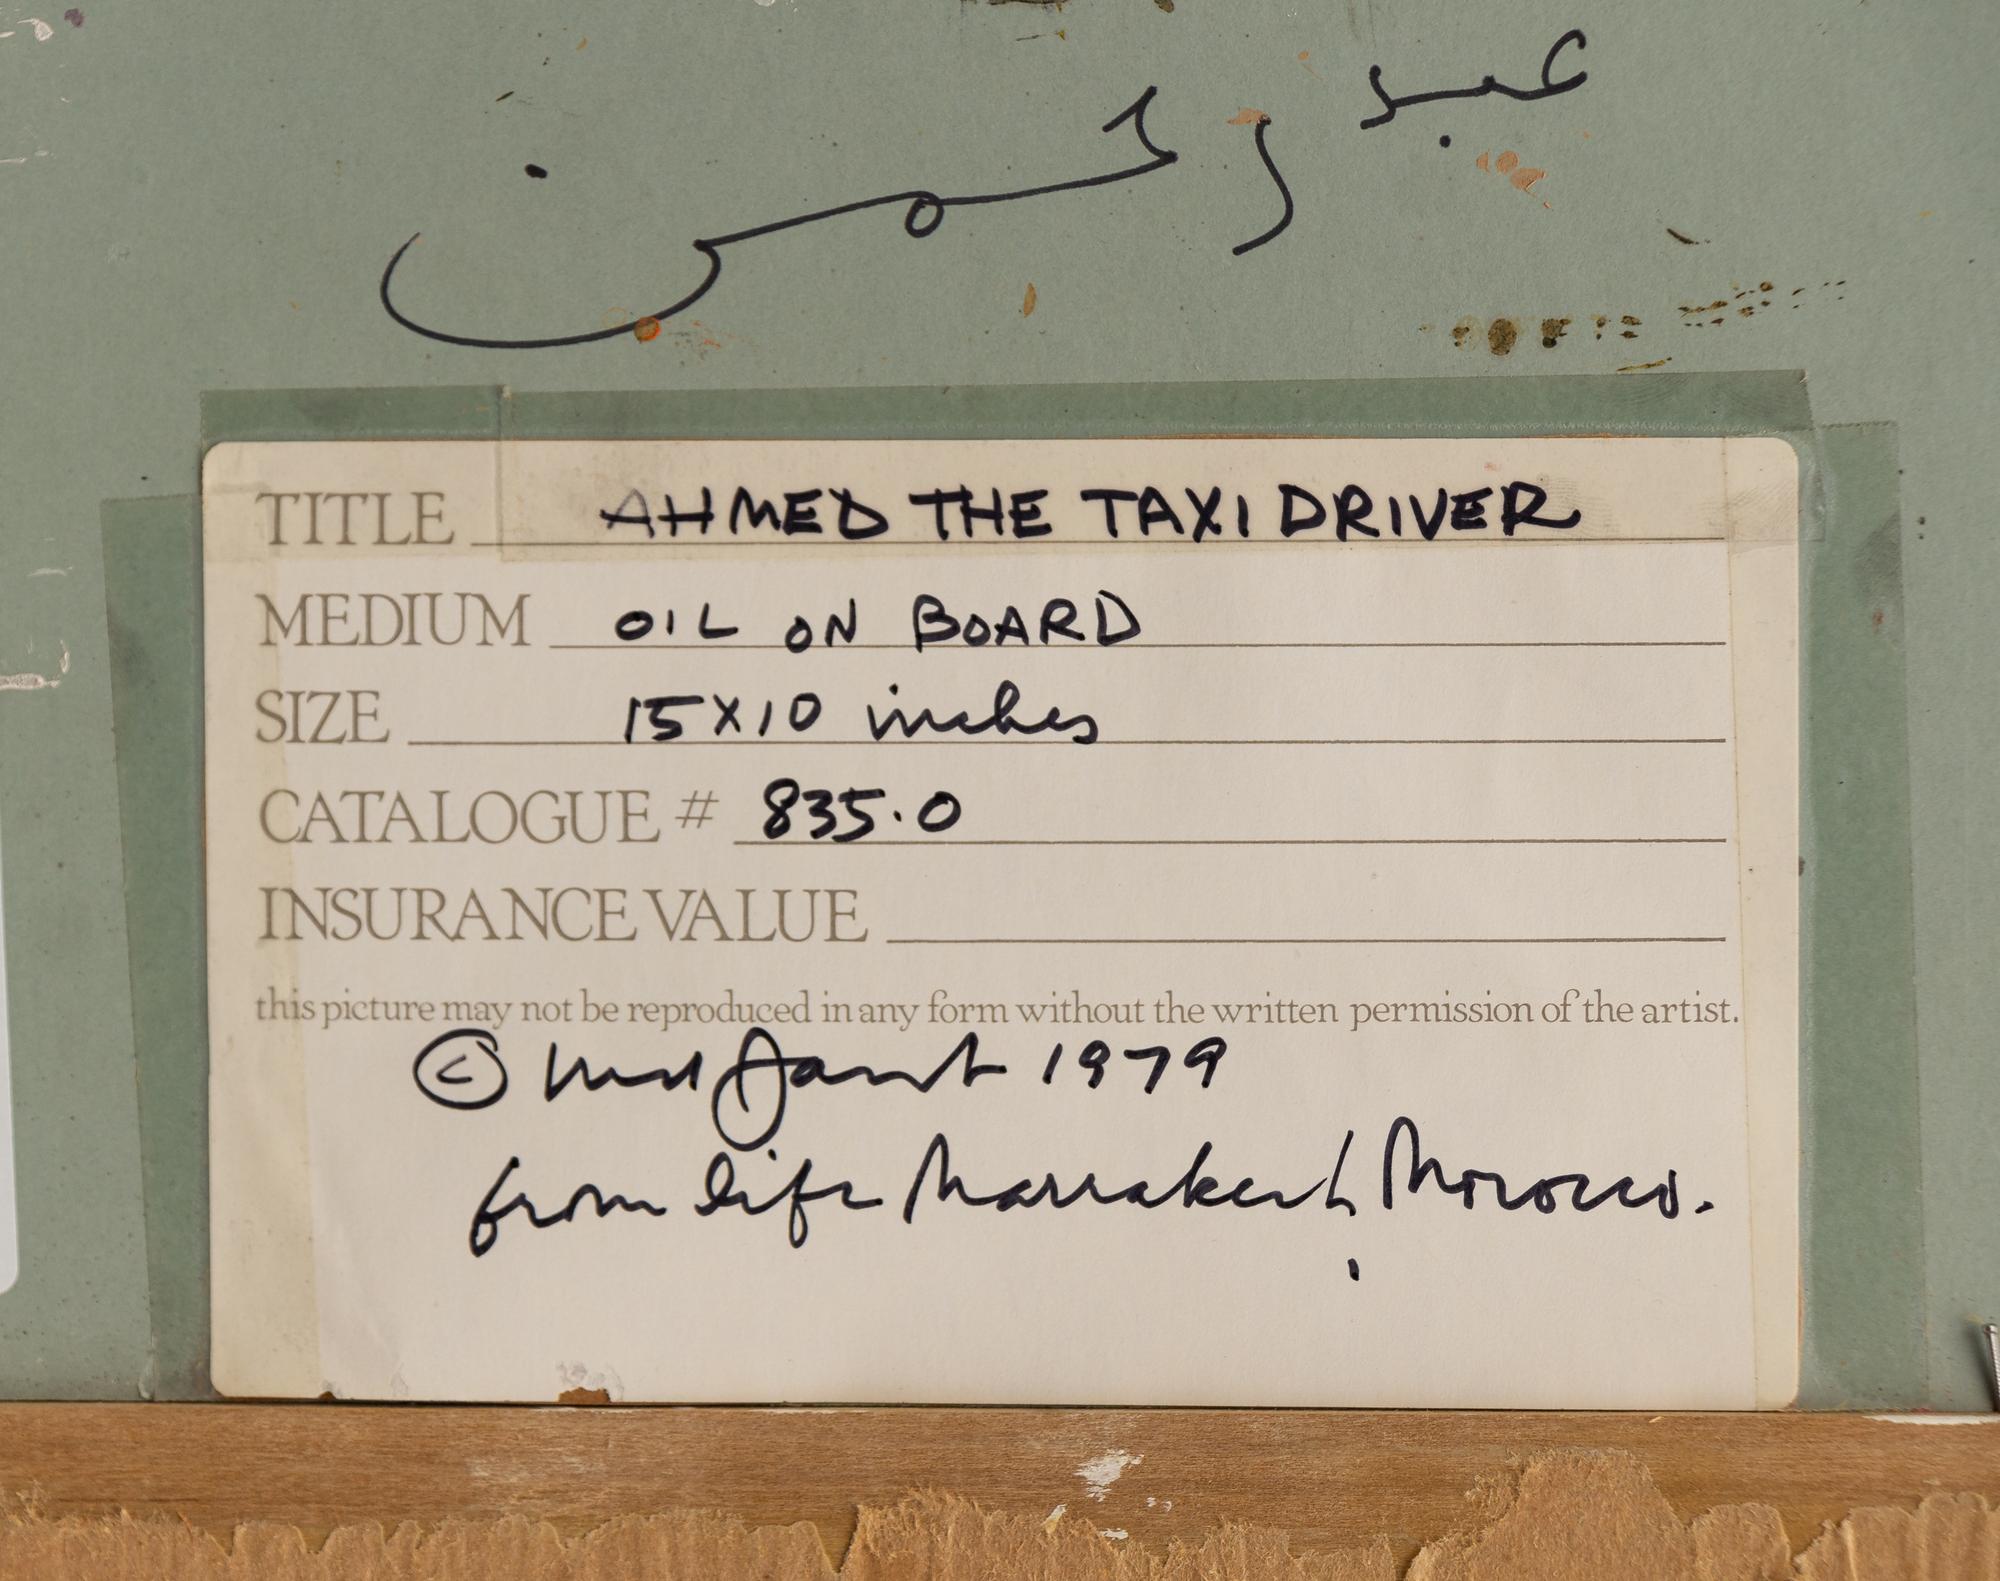 عبد رحمن
TITLE AHMED THE TAXI DRIVER
MEDIUM OIL ON BOARD
SIZE 15X10 inches
CATALOGUE # 835.0
INSURANCE VALUE
this picture may not be reproduced in any form without the written permission of the artist.
© 1979
from life Marrakesh, Morocco.